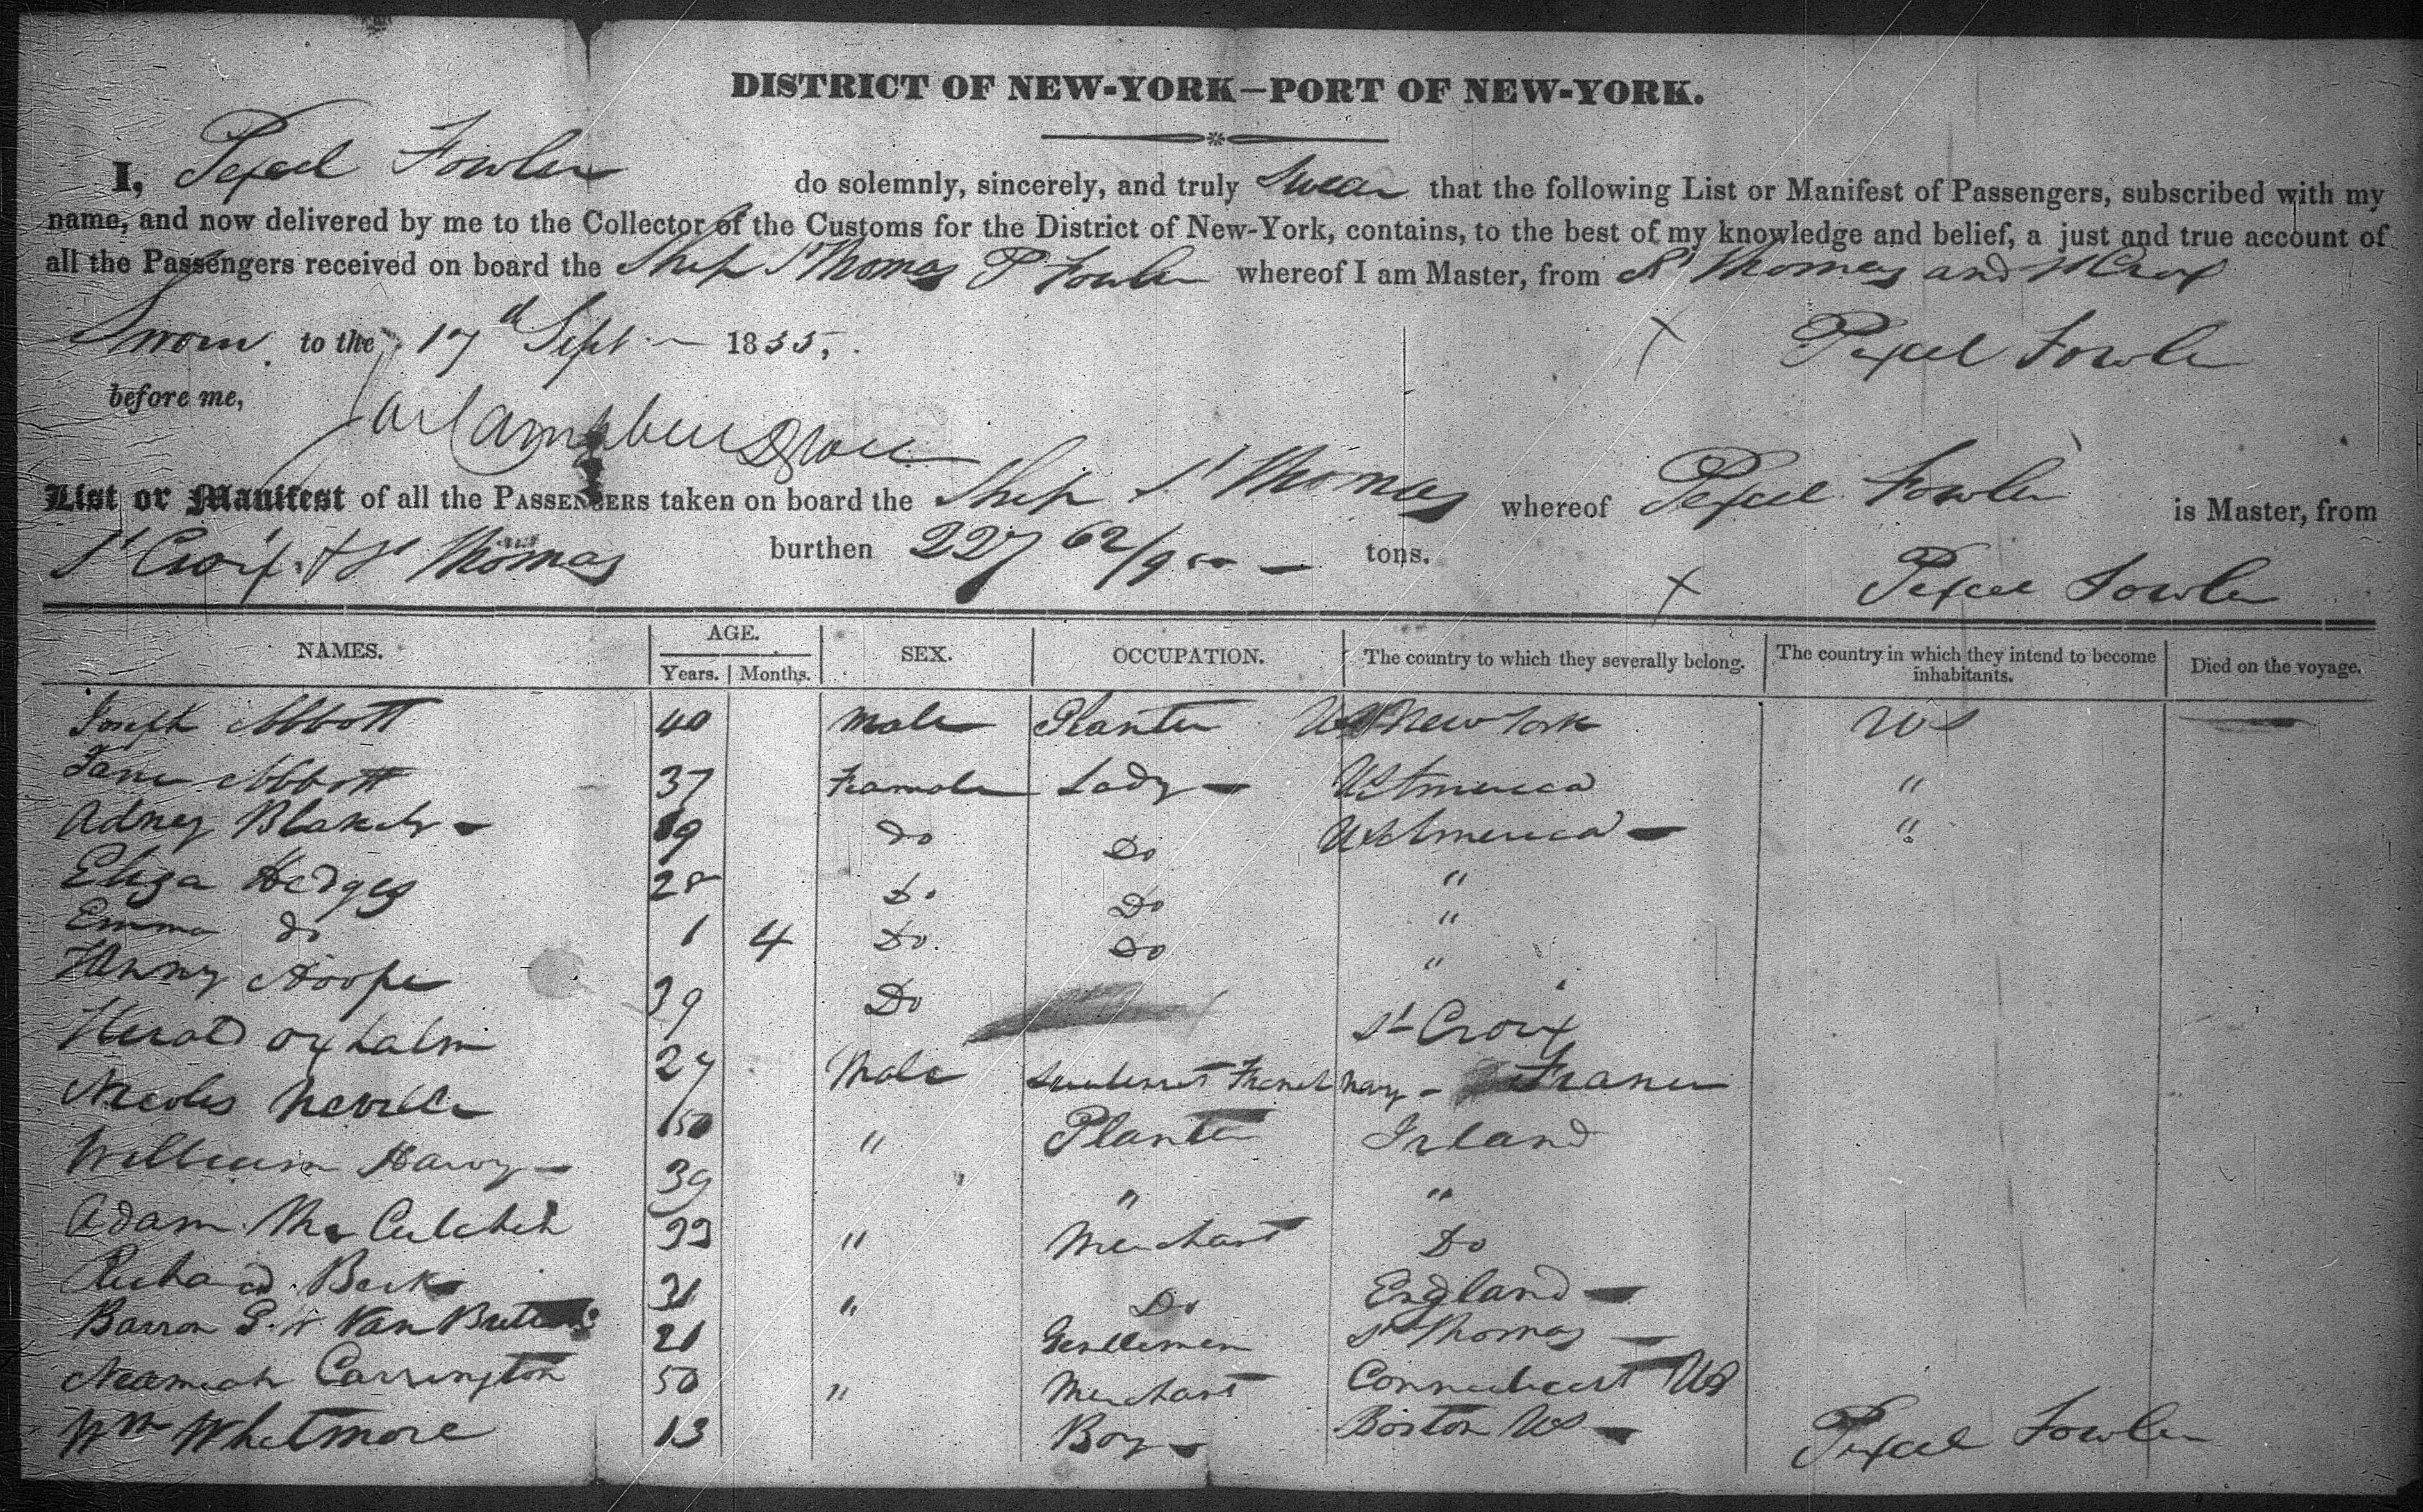 DISTRICT OF NEW-YORK—PORT OF NEW-YORK.
I, Pexcel Fowler do solemnly, sincerely, and truly Swear that the following List or Manifest of Passengers, subscribed with my
name, and now delivered by me to the Collector of the Customs for the District of New-York, contains, to the best of my knowledge and belief, a just and true account of
all the Passengers received on board the Ship St Thomas P Fowler whereof I am Master, from St Thomas and St Croix
Sworn to the 17th Sept 1835, Pexcel Fowler
before me,
List or Manifest of all the PASSENGERS taken on board the Ship St Thomas whereof Pexcel Fowler is Master, from
St Croix & St Thomas burthen 227 62/95 tons. Pexcel Fowler
NAMES. AGE. Years. Months. SEX. OCCUPATION. The country to which they severally belong. The country in which they intend to become inhabitants. Died on the voyage.
Joseph Abbott 40 Male Planter US New York US
Jane Abbott 37 Framale Lady US America "
Adney Blakely 19 do Do US America "
Eliza Hedges 28 Do Do "
Emma do 1 4 Do Do "
Hoope 39 Do "
Oxholm 27 Male St Croix
Nevelle 50 " Lieutenant French Navy France
William 39 " Planter Irland
Adam Mc 33 " Merchant Do
Richard Beck 31 " Do England
Barron G. W. Van 21 Gentlemen St Thomas
Neamiah Carrington 50 " Merchant Connecticut US
Wm Whetmore 13 Boy Boston US Pexcel Fowler